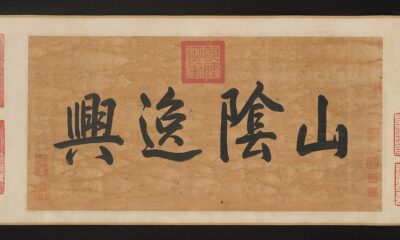 山陰逸興